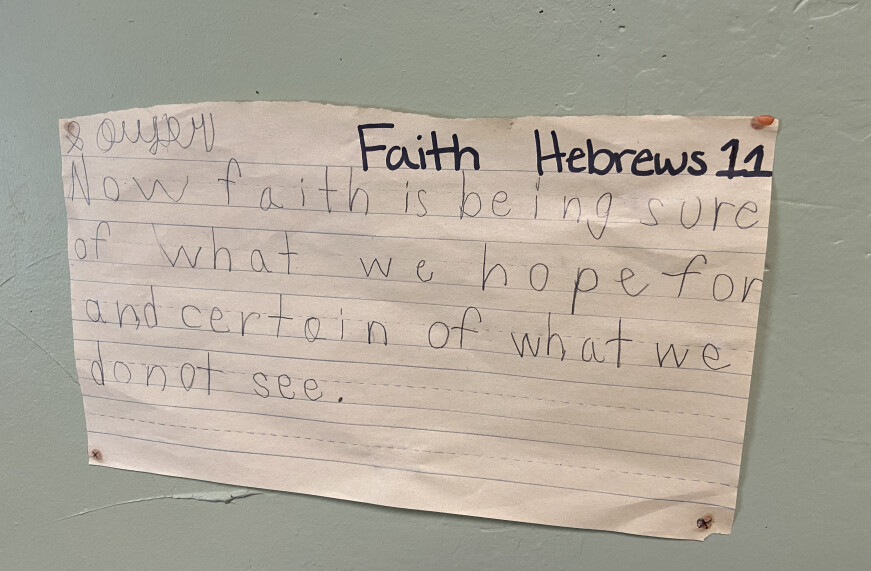 Faith Hebrews 11
Now faith is being sure
of what we hope for
and certain of what we
do not see.